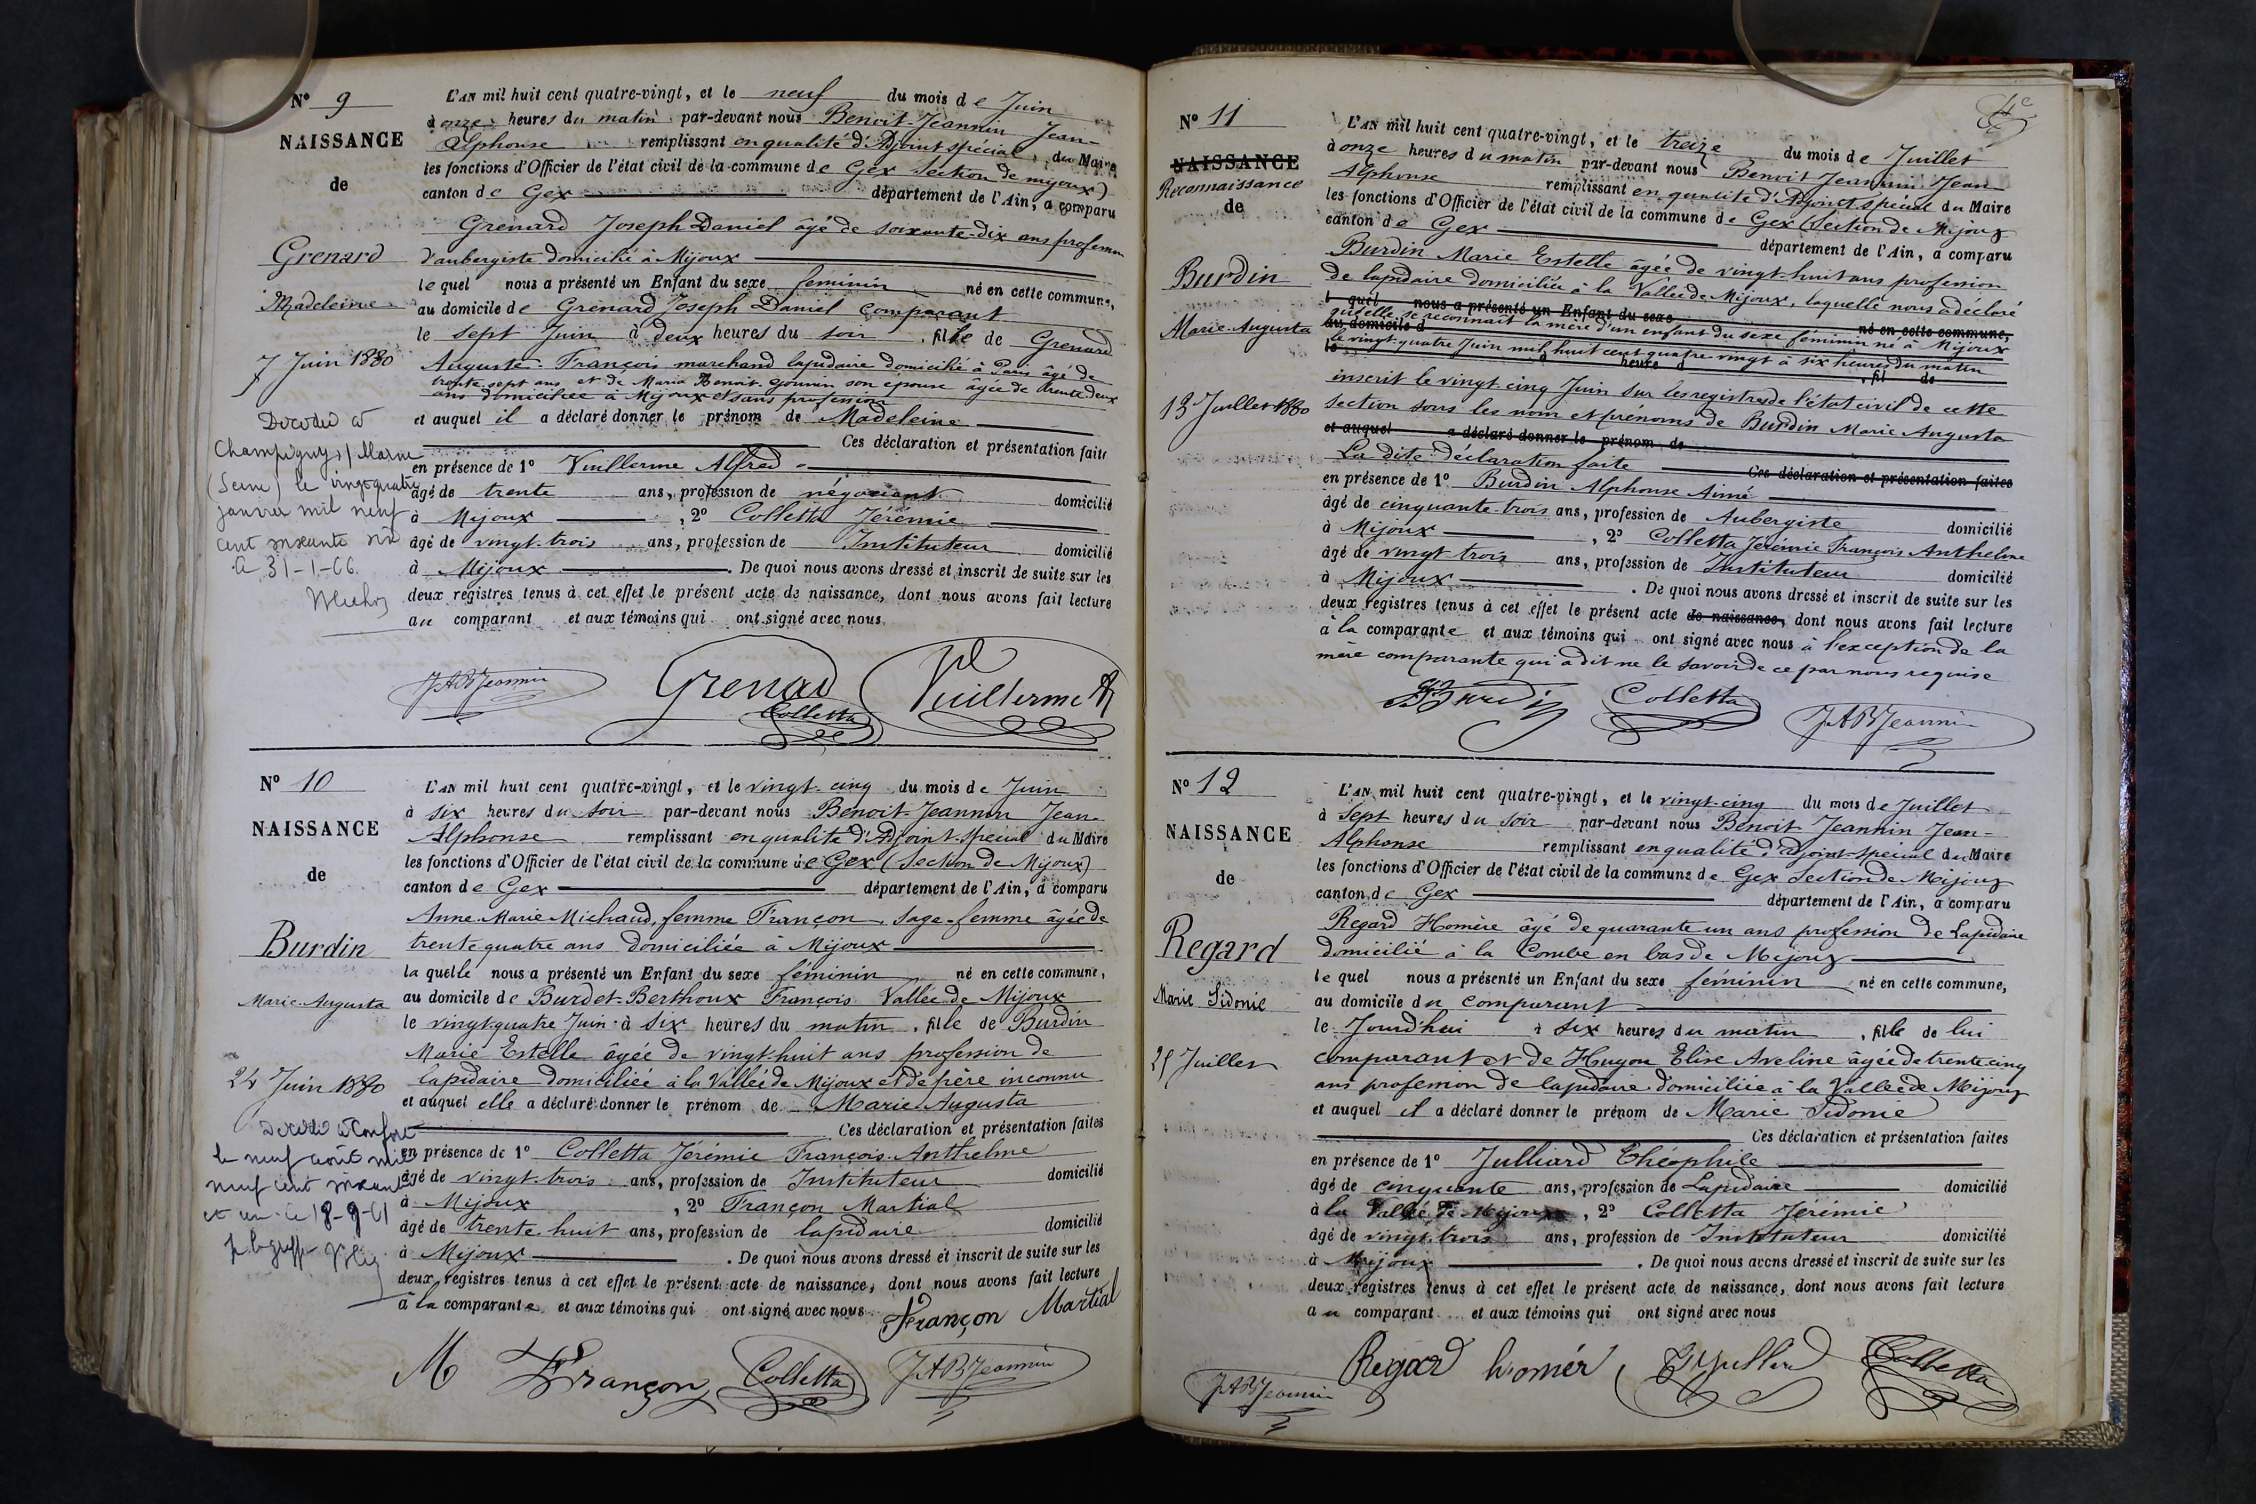 N° 9
NAISSANCE
de
Grenard
Madeleine
7 Juin 1880
Décédée à
Champigny s/ Marne
(Seine) le vingt quatre
janvier mil neuf
cent soixante six
le 31-1-66
L'AN mil huit cent quatre-vingt, et le neuf du mois de Juin
à onze heures du matin par-devant nous Benoit-Jeannin Jean-
Alphonse remplissant en qualité d'Adjoint spécial, du Maire
les fonctions d'Officier de l'état civil de la commune de Gex Section de mijoux)
canton de Gex département de l'Ain, a comparu
Grenard Joseph Daniel âgé de soixante-dix ans profession
d'aubergiste domicilié à Mijoux
le quel nous a présenté un Enfant du sexe féminin né en cette commune,
au domicile de Grenard Joseph Daniel comparant
le sept Juin à deux heures du soir, fille de Grenard
Auguste-François marchand lapidaire domicilié à Paris âgé de
trente sept ans et de Maria Benoit-gonnin son épouse âgée de trente deux
ans domiciliée à Mijoux et sans profession
et auquel il a déclaré donner le prénom de Madeleine
Ces déclaration et présentation faites
en présence de 1° Vuillerme Alfred
âgé de trente ans, profession de négociant domicilié
à Mijoux, 2° Colletta Jérémie
âgé de vingt-trois ans, profession de Instituteur domicilié
à Mijoux. De quoi nous avons dressé et inscrit de suite sur les
deux registres tenus à cet effet le présent acte de naissance, dont nous avons fait lecture
au comparant et aux témoins qui ont signé avec nous
JABJeannin Grenad Colletta Vuillerme A
N° 10
NAISSANCE
de
Burdin
Marie-Augusta
24 Juin 1880
Décédée à Confort
le neuf août mil
neuf cent soixante
et un. le 18-9-61
L'AN mil huit cent quatre-vingt, et le vingt-cinq du mois de Juin
à six heures du soir par-devant nous Benoit-Jeannin Jean-
Alphonse remplissant en qualité d'Adjoint-spécial du Maire
les fonctions d'Officier de l'état civil de la commune de Gex (Section de Mijoux)
canton de Gex département de l'Ain, a comparu
Anne-Marie Michaud, femme Françon, Sage-femme âgée de
trente quatre ans domiciliée à Mijoux
la quelle nous a présenté un Enfant du sexe féminin né en cette commune,
au domicile de Burdet-Berthoux François Vallée de Mijoux
le vingt-quatre Juin à six heures du matin, fille de Burdin
Marie Estelle âgée de vingt-huit ans profession de
lapidaire domiciliée à la Vallée de Mijoux et de père inconnu
et auquel elle a déclaré donner le prénom de Marie-Augusta
Ces déclaration et présentation faites
en présence de 1° Colletta Jérémie François-Anthelme
âgé de vingt-trois ans, profession de Instituteur domicilié
à Mijoux, 2° Françon Martial
âgé de trente-huit ans, profession de lapidaire domicilié
à Mijoux. De quoi nous avons dressé et inscrit de suite sur les
deux registres tenus à cet effet le présent acte de naissance, dont nous avons fait lecture
à la comparante et aux témoins qui ont signé avec nous Françon Martial
M Françon Colletta JABJeannin
N° 11
NAISSANCE
Reconnaissance
de
Burdin
Marie-Augusta
13 Juillet 1880
L'AN mil huit cent quatre-vingt, et le treize du mois de Juillet
à onze heures du matin par-devant nous Benoit Jeannin Jean
Alphonse remplissant en qualité d'Adjoint spécial du Maire
les fonctions d'Officier de l'état civil de la commune de Gex (Section de Mijoux
canton de Gex département de l'Ain, a comparu
Burdin Marie Estelle âgée de vingt-huit ans profession
de lapidaire domiciliée à la Vallée de Mijoux, laquelle nous a déclaré
l quel nous a présenté un Enfant du sexe né en cette commune,
qu'elle se reconnaît la mère d'un enfant du sexe féminin né à Mijoux
au domicile d
le vingt-quatre Juin mil huit cent quatre vingt à six heures du matin
le à heure d, fil de
inscrit le vingt-cinq Juin sur les registres de l'état civil de cette
section sous les nom et prénoms de Burdin Marie Augusta
et auquel a déclaré donner le prénom de
La dite déclaration faite Ces déclaration et présentation faites
en présence de 1° Burdin Alphonse Aimé
âgé de cinquante-trois ans, profession de Aubergiste domicilié
à Mijoux, 2° Colletta Jérémie François Anthelme
âgé de vingt trois ans, profession de Instituteur domicilié
à Mijoux. De quoi nous avons dressé et inscrit de suite sur les
deux registres tenus à cet effet le présent acte de naissance, dont nous avons fait lecture
à la comparante et aux témoins qui ont signé avec nous à l'exception de la
mère comparante qui a dit ne le savoir de ce par nous requise
Burdin Colletta JABJeannin
N° 12
NAISSANCE
de
Regard
Marie Sidonie
25 Juillet
L'AN mil huit cent quatre-vingt, et le vingt-cinq du mois de Juillet
à Sept heures du soir par-devant nous Benoit Jeannin Jean-
Alphonse remplissant en qualité d'adjoint-spécial du Maire
les fonctions d'Officier de l'état civil de la commune de Gex Section de Mijoux
canton de Gex département de l'Ain, a comparu
Regard Homère âgé de quarante un ans profession de Lapidaire
domicilié à la Combe en bas de Mijoux
le quel nous a présenté un Enfant du sexe féminin né en cette commune,
au domicile du comparant
le Jourd'hui à six heures du matin, fille de lui
comparant et de Hugon Elise Aveline âgée de trente cinq
ans profession de lapidaire domiciliée à la Vallée de Mijoux
et auquel il a déclaré donner le prénom de Marie Sidonie
Ces déclaration et présentation faites
en présence de 1° Julliard Théophile
âgé de cinquante ans, profession de Lapidaire domicilié
à la Vallée de Mijoux, 2° Colletta Jérémie
âgé de vingt-trois ans, profession de Instituteur domicilié
à Mijoux. De quoi nous avons dressé et inscrit de suite sur les
deux registres tenus à cet effet le présent acte de naissance, dont nous avons fait lecture
au comparant et aux témoins qui ont signé avec nous
JABJeannin Regard homér Colletta